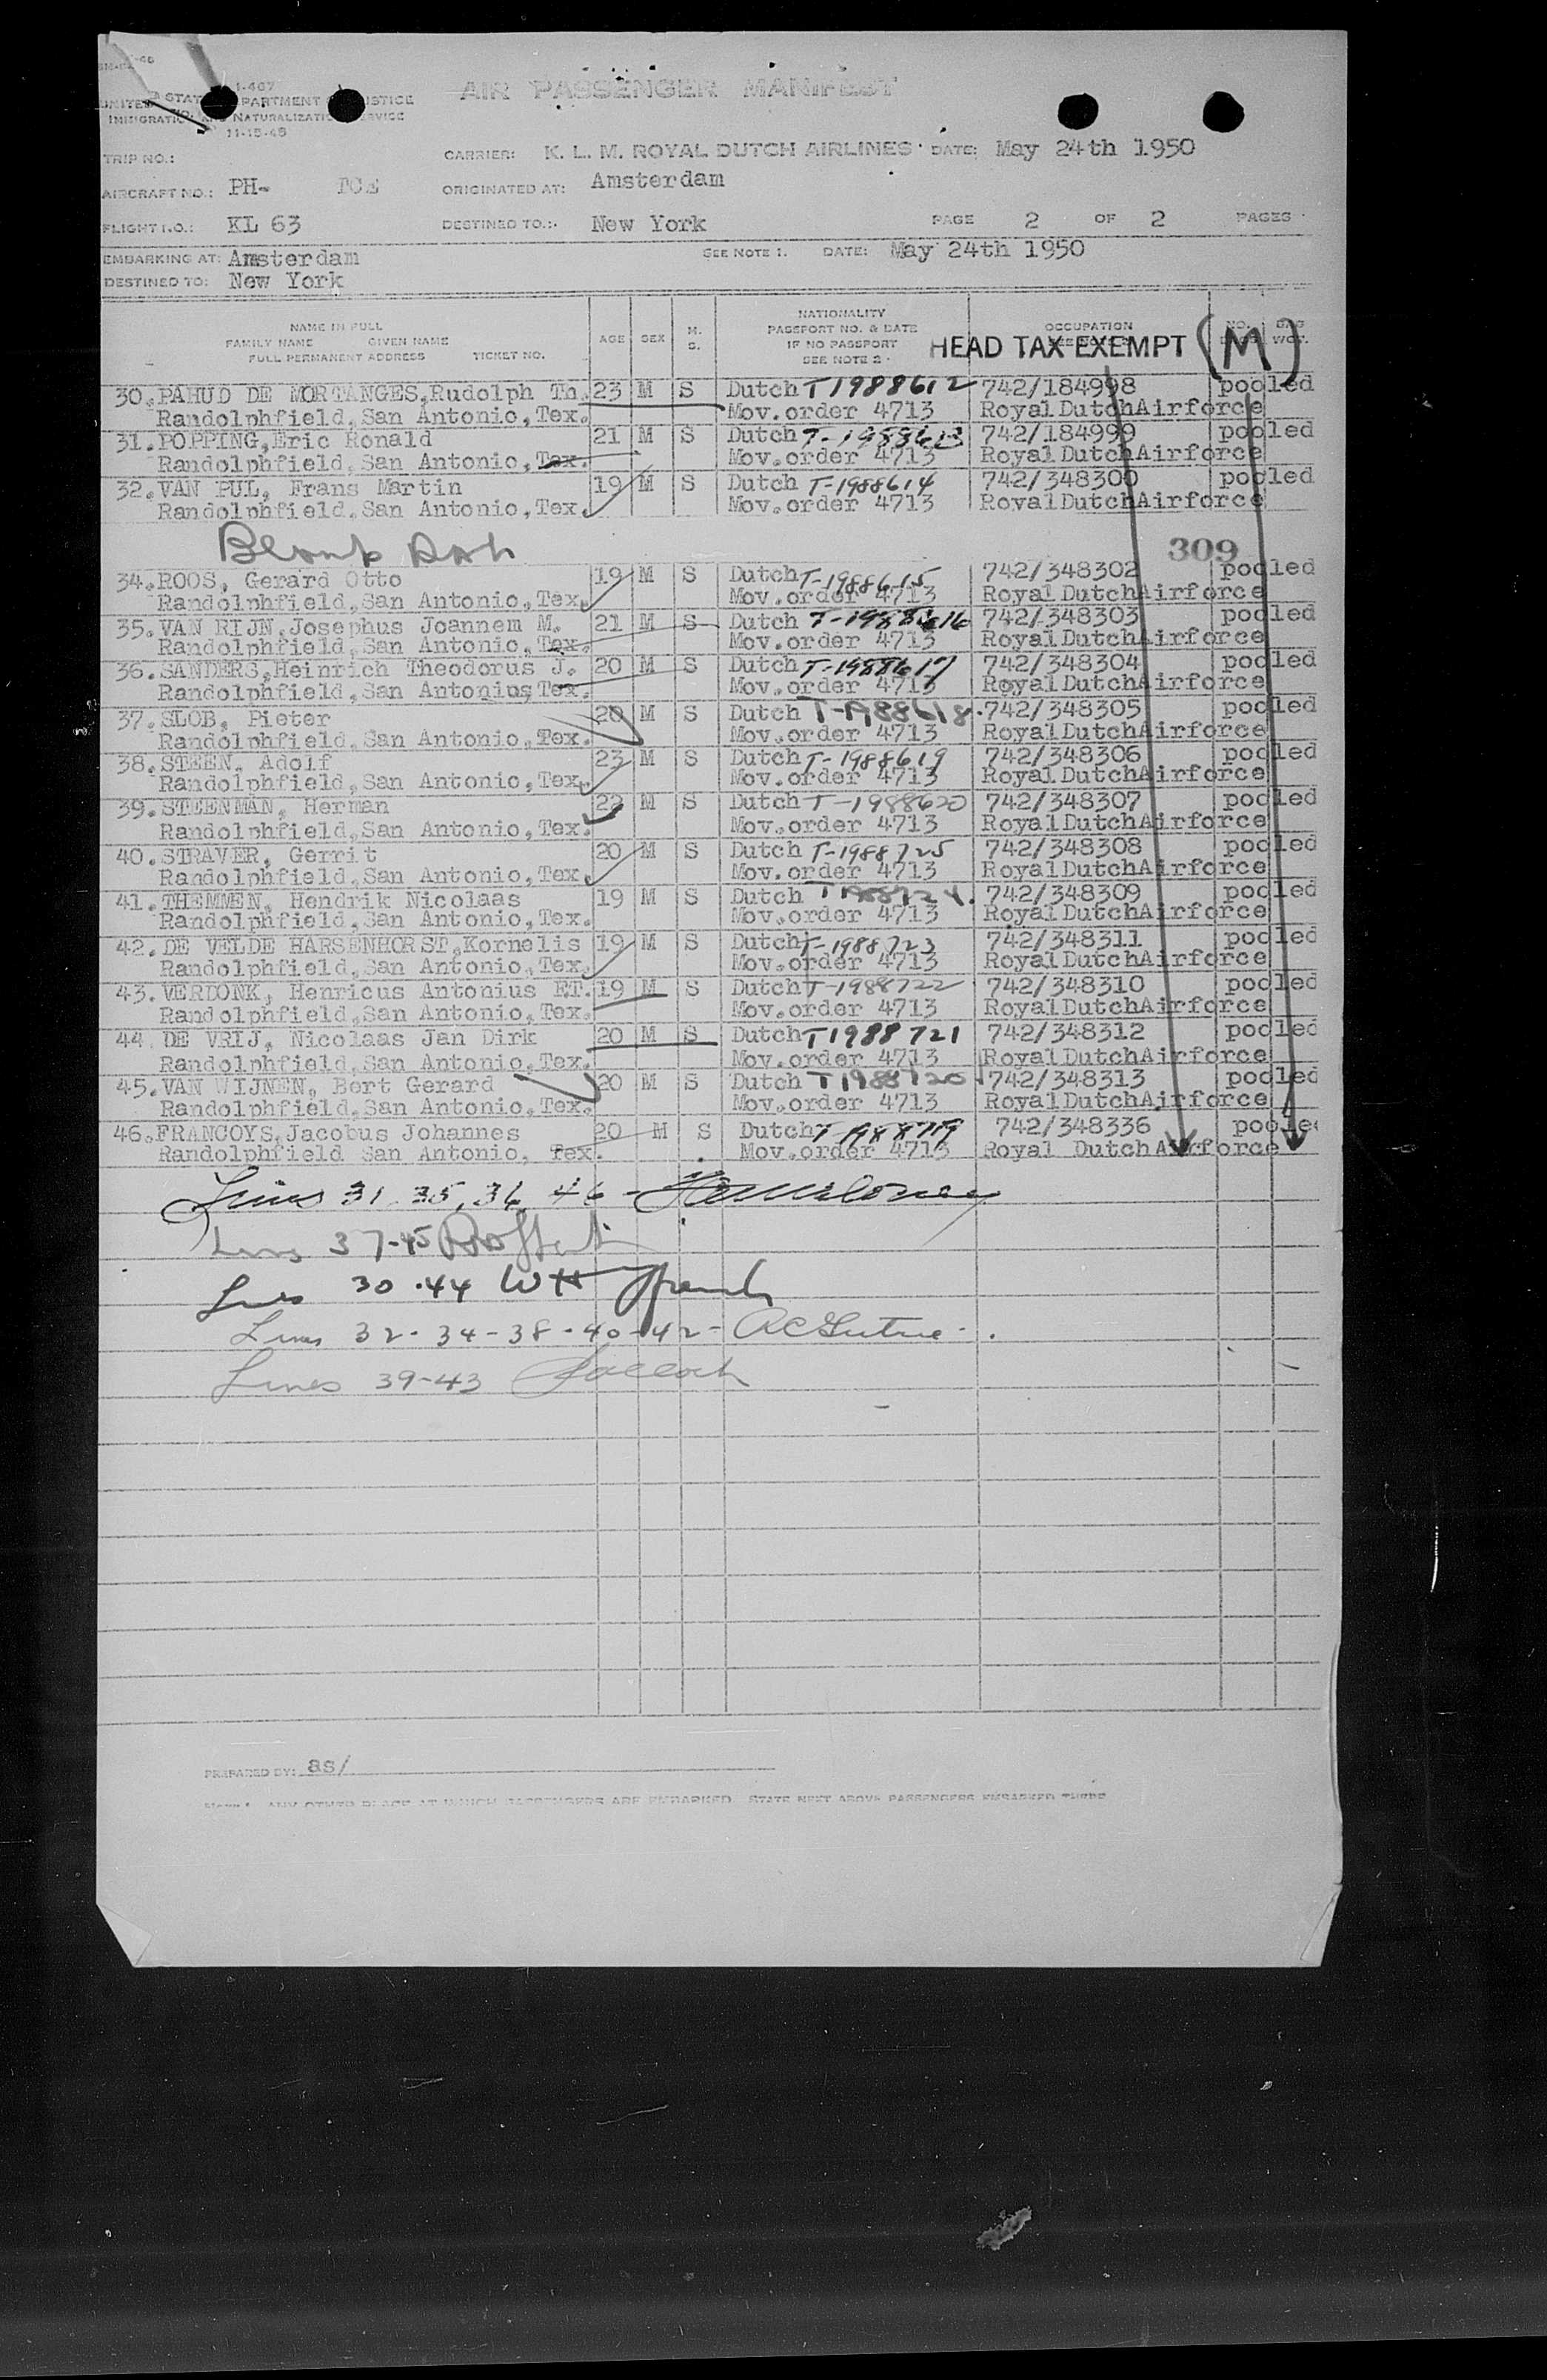 I-467
UNITED STATES DEPARTMENT OF JUSTICE
IMMIGRATION AND NATURALIZATION SERVICE
11-15-48
AIR PASSENGER MANIFEST
TRIP NO.: CARRIER: K. L. M. ROYAL DUTCH AIRLINES DATE: May 24th 1950
AIRCRAFT NO.: PH- ORIGINATED AT: Amsterdam
FLIGHT NO.: KL 63 DESTINED TO: New York PAGE 2 OF 2 PAGES
EMBARKING AT: Amsterdam SEE NOTE 1. DATE: May 24th 1950
DESTINED TO: New York
NAME IN FULL
FAMILY NAME GIVEN NAME
FULL PERMANENT ADDRESS TICKET NO.
AGE SEX M. S.
NATIONALITY
PASSPORT NO. & DATE
IF NO PASSPORT
SEE NOTE 2
OCCUPATION
HEAD TAX EXEMPT (M)
30. PAHUD DE MORTANGES, Rudolph Th. 23 M S Dutch T1988612 742/184998 pooled
Randolphfield, San Antonio, Tex. Mov.order 4713 RoyalDutchAirforce
31. POPPING, Eric Ronald 21 M S Dutch T-1988613 742/184999 pooled
Randolphfield, San Antonio, Tex. Mov.order 4713 RoyalDutchAirforce
32. VAN PUL, Frans Martin 19 M S Dutch T-1988614 742/348300 pooled
Randolphfield, San Antonio, Tex. Mov.order 4713 RoyalDutchAirforce
Blank
309
34. ROOS, Gerard Otto 19 M S Dutch T-1988615 742/348302 pooled
Randolphfield, San Antonio, Tex. Mov.order 4713 RoyalDutchAirforce
35. VAN RIJN, Josephus Joannem M. 21 M S Dutch T-1988616 742/348303 pooled
Randolphfield, San Antonio, Tex. Mov.order 4713 RoyalDutchAirforce
36. SANDERS, Heinrich Theodorus J. 20 M S Dutch T-1988617 742/348304 pooled
Randolphfield, San Antonius, Tex. Mov.order 4713 RoyalDutchAirforce
37. SLOB, Pieter 20 M S Dutch T-1988618 742/348305 pooled
Randolphfield, San Antonio, Tex. Mov.order 4713 RoyalDutchAirforce
38. STEEN, Adolf 23 M S Dutch T-1988619 742/348306 pooled
Randolphfield, San Antonio, Tex. Mov.order 4713 RoyalDutchAirforce
39. STEENMAN, Herman 22 M S Dutch T-1988620 742/348307 pooled
Randolphfield, San Antonio, Tex. Mov.order 4713 RoyalDutchAirforce
40. STRAVER, Gerrit 20 M S Dutch T-1988725 742/348308 pooled
Randolphfield, San Antonio, Tex. Mov.order 4713 RoyalDutchAirforce
41. THEMMEN, Hendrik Nicolaas 19 M S Dutch T1988724. 742/348309 pooled
Randolphfield, San Antonio, Tex. Mov.order 4713 RoyalDutchAirforce
42. DE VELDE HARSENHORST, Kornelis 19 M S Dutch T-1988723 742/348311 pooled
Randolphfield, San Antonio, Tex. Mov.order 4713 RoyalDutchAirforce
43. VERDONK, Henricus Antonius ET. 19 M S Dutch T-1988722 742/348310 pooled
Randolphfield, San Antonio, Tex. Mov.order 4713 RoyalDutchAirforce
44. DE VRIJ, Nicolaas Jan Dirk 20 M S Dutch T1988721 742/348312 pooled
Randolphfield, San Antonio, Tex. Mov.order 4713 RoyalDutchAirforce
45. VAN WIJNEN, Bert Gerard 20 M S Dutch T1988720 742/348313 pooled
Randolphfield, San Antonio, Tex. Mov.order 4713 RoyalDutchAirforce
46. FRANCOYS, Jacobus Johannes 20 M S Dutch T-1988719 742/348336 pooled
Randolphfield San Antonio, Tex. Mov.order 4713 Royal DutchAirforce
Lines 31 35, 36, 46 -
Lines 37-45
Lines 30 .44
Lines 32 - 34 - 38 - 40 - 42 -
Lines 39-43
PREPARED BY: as/
NOTE 1. ANY OTHER PLACE AT WHICH PASSENGERS ARE EMBARKED, STATE NEXT ABOVE PASSENGERS EMBARKED THERE